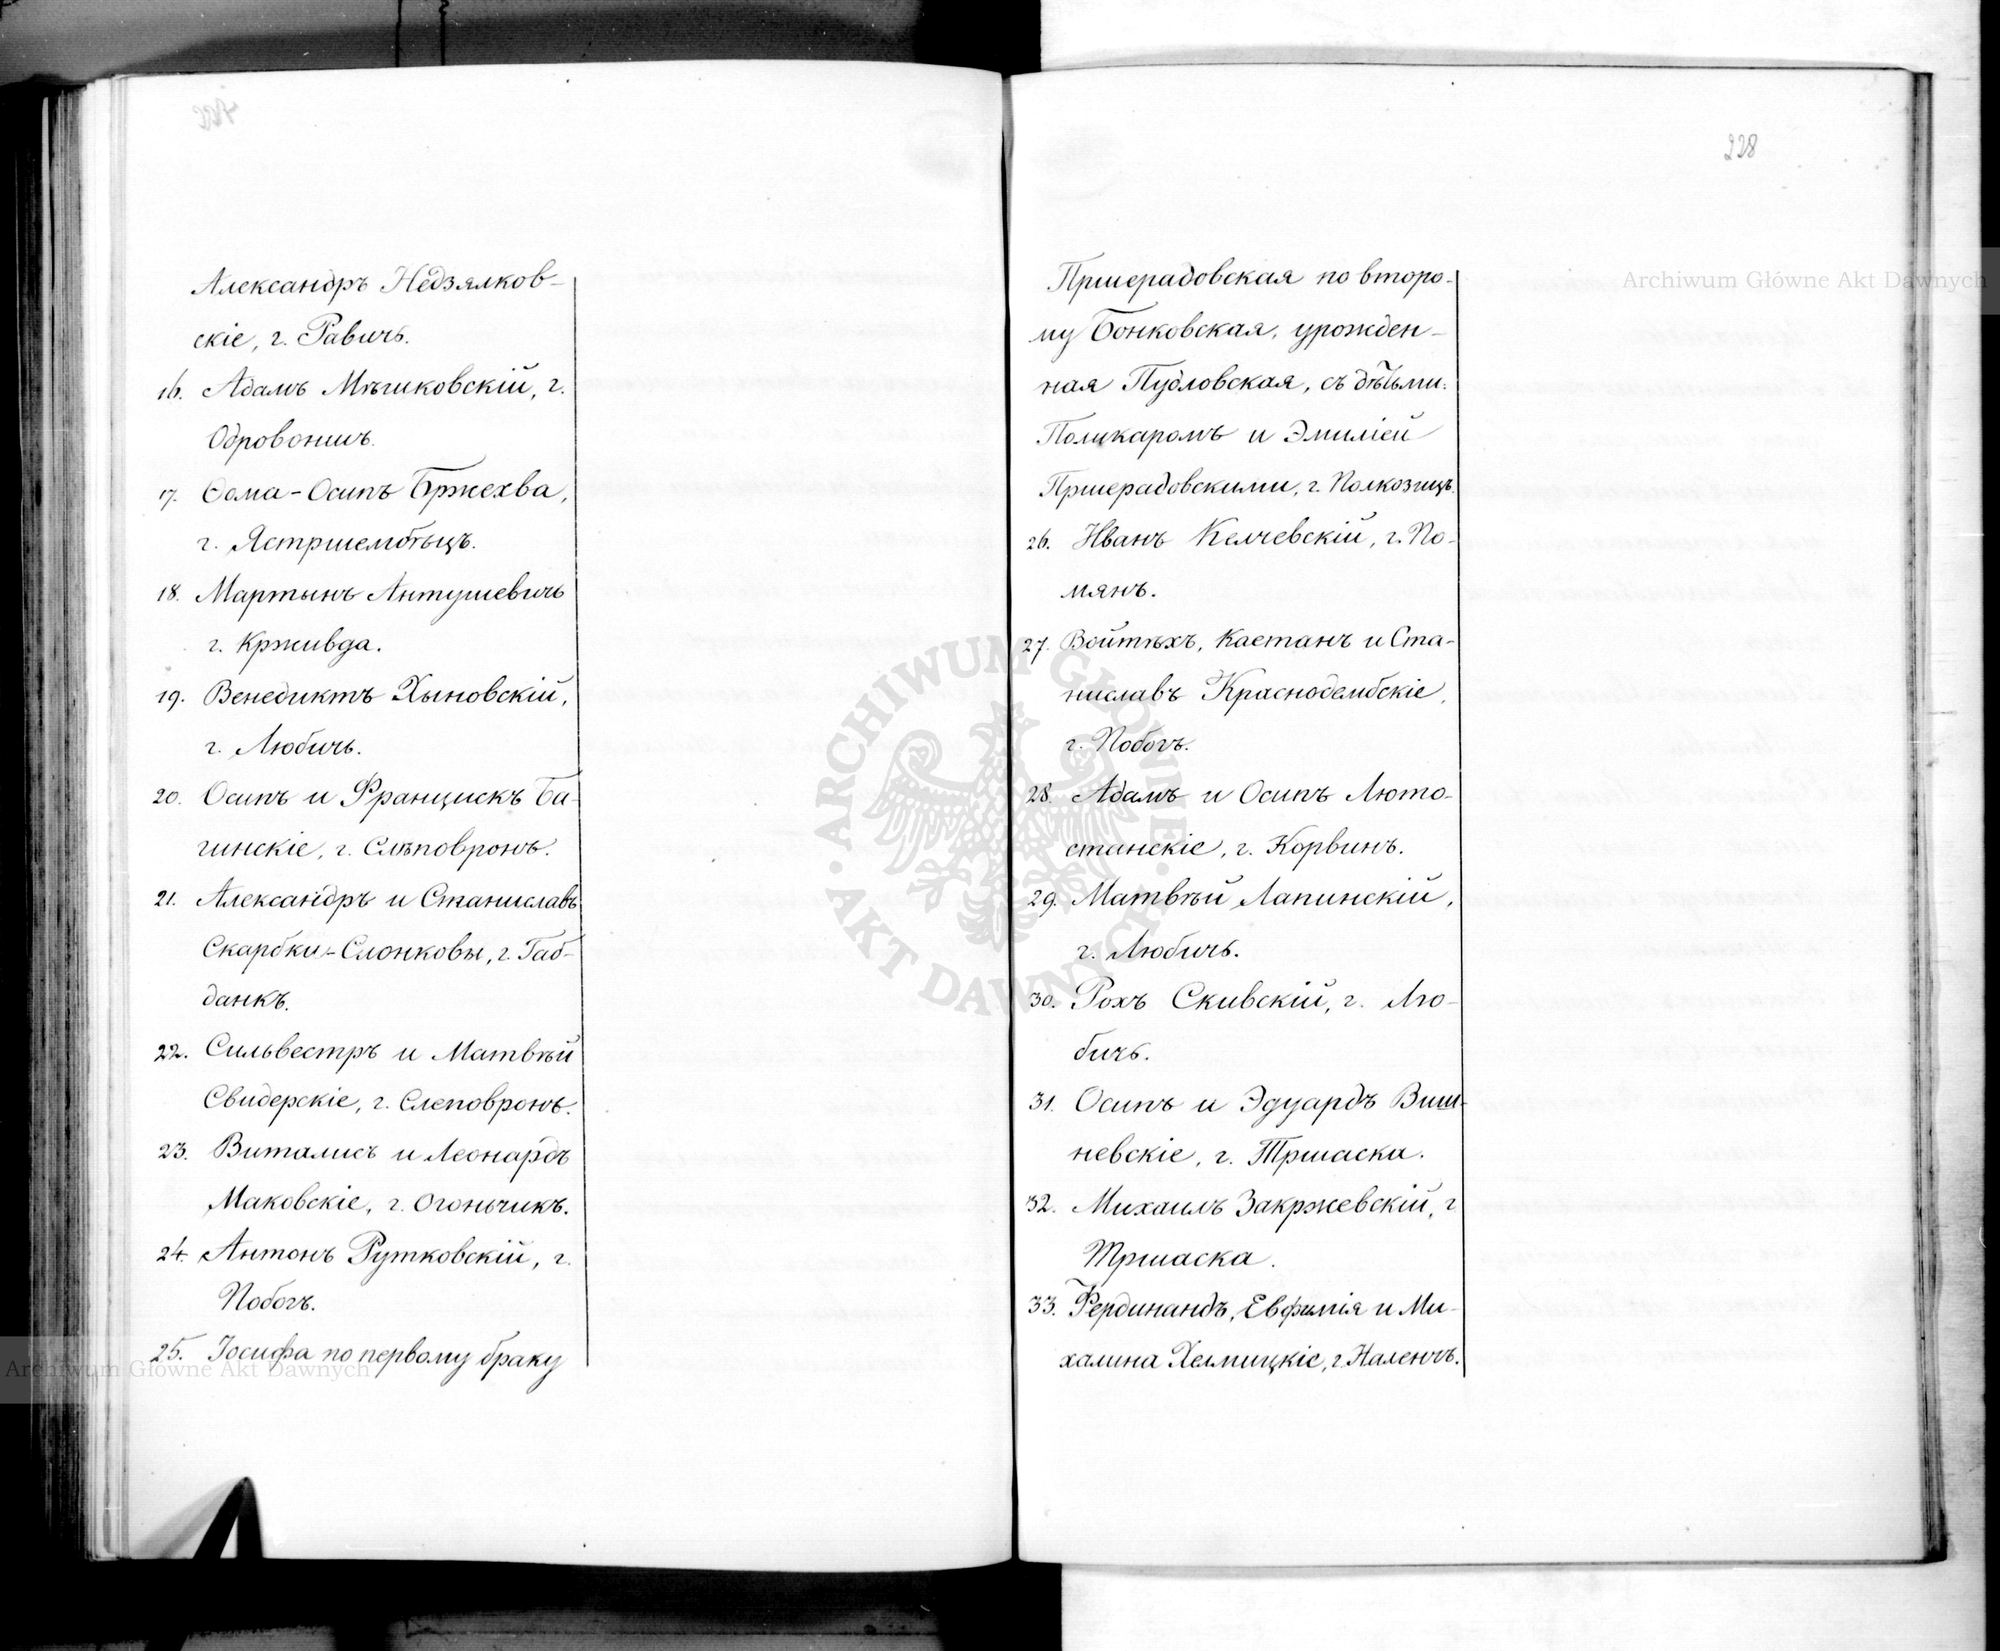 Александръ Недзялков-
скіе, г. Равичъ.
16. Адамъ Мѣшковскій, г.
Одровонжъ.
17. Ѳома-Осипъ Бржехва,
г. Ястршембецъ.
18. Мартынъ Антушевичъ
г. Крживда.
19. Венедиктъ Хыновскій,
г. Любичъ.
20. Осипъ и Францискъ Ба-
гинскіе, г. Слѣповронъ.
21. Александръ и Станиславъ
Скарбки-Слонковы, г. Габ-
данкъ.
22. Сильвестръ и Матвѣй
Свидерскіе, г. Слеповронъ.
23. Виталисъ и Леонардъ
Маковскіе, г. Огоньчикъ.
24. Антонъ Рутковскій, г.
Побогъ.
25. Іосифа по первому браку
228
Пршерадовская по второ-
му Бонковская, урожден-
ная Пудловская, съ дѣтьми:
Поликаромъ и Эмиліей
Пршерадовскими, г. Полкозицъ.
26. Иванъ Келчевскій, г. По-
мянъ.
27. Войтѣхъ, Каетанъ и Ста-
ниславъ Краснодембскіе,
г. Побогъ.
28. Адамъ и Осипъ Люто-
станскіе, г. Корвинъ.
29. Матвѣй Лапинскій,
г. Любичъ.
30. Рохъ Скивскій, г. Лю-
бичъ.
31. Осипъ и Эдуардъ Виш-
невскіе, г. Тршаска.
32. Михаилъ Закржевскій, г
Тршаска.
33. Фердинандъ, Евфимія и Ми-
халина Хелмицкіе, г. Наленчъ.
Archiwum Główne Akt Dawnych
Archiwum Główne Akt Dawnych
ARCHIWUM GŁÓWNE · AKT DAWNYCH ·